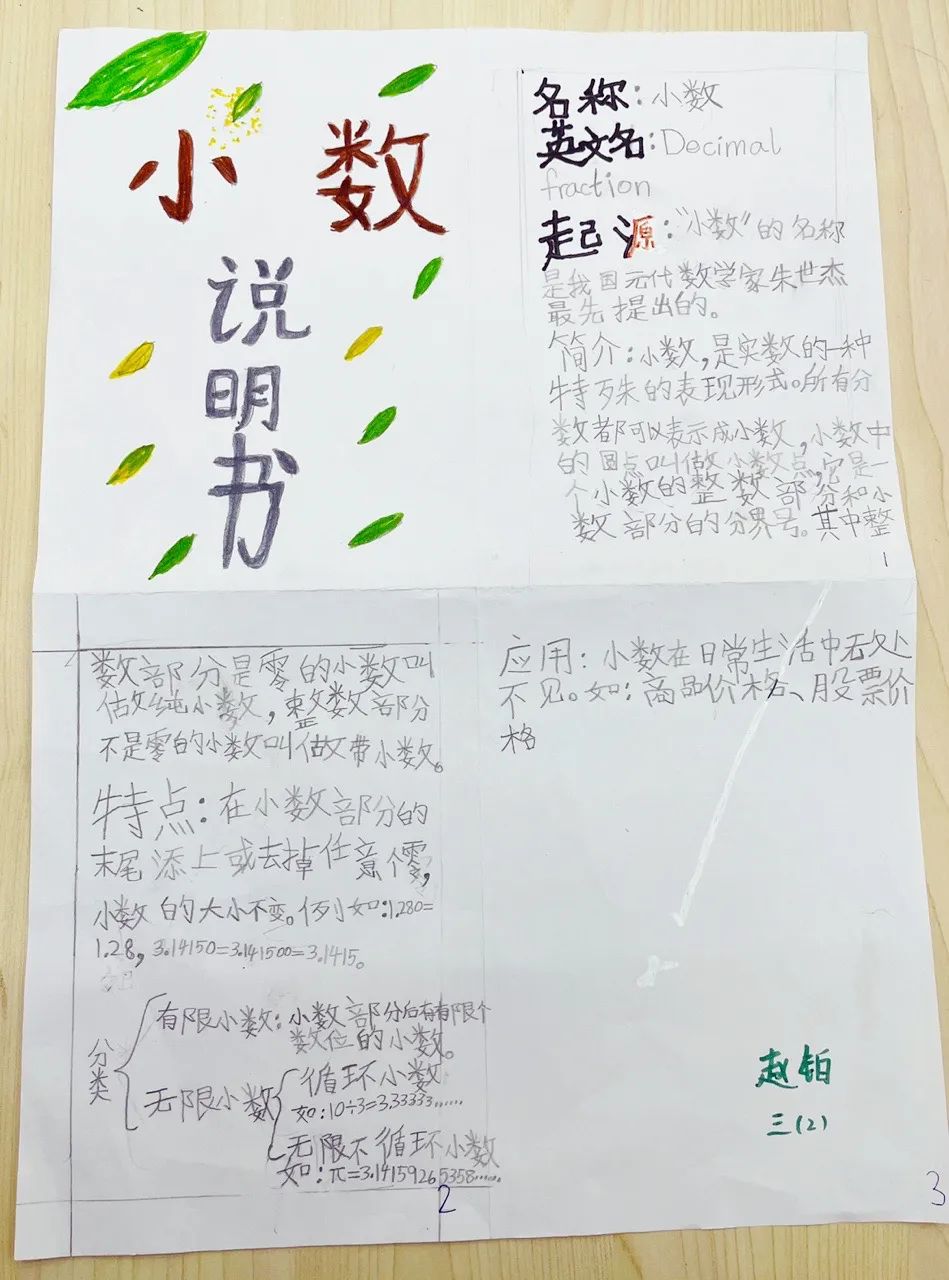 小数
说
明
书
名称：小数
英文名：Decimal
fraction
起源："小数"的名称
是我国元代数学家朱世杰
最先提出的。
简介：小数，是实数的一种
特殊的表现形式。所有分
数都可以表示成小数，小数中
的圆点叫做小数点，它是一
个小数的整数部分和小
数部分的分界号。其中整
1
数部分是零的小数叫
做纯小数，整数部分
不是零的小数叫做带小数。
特点：在小数部分的
末尾添上或去掉任意个零，
小数的大小不变。例如：1.280=
1.28，3.14150=3.141500=3.1415。
分类
有限小数：小数部分后有有限个
数位的小数。
无限小数
循环小数
如：10÷3=3.33333……
无限不循环小数
如：π=3.14159265358……
2
应用：小数在日常生活中无处
不见。如：商品价格、股票价
格
赵铂
三(2)
3